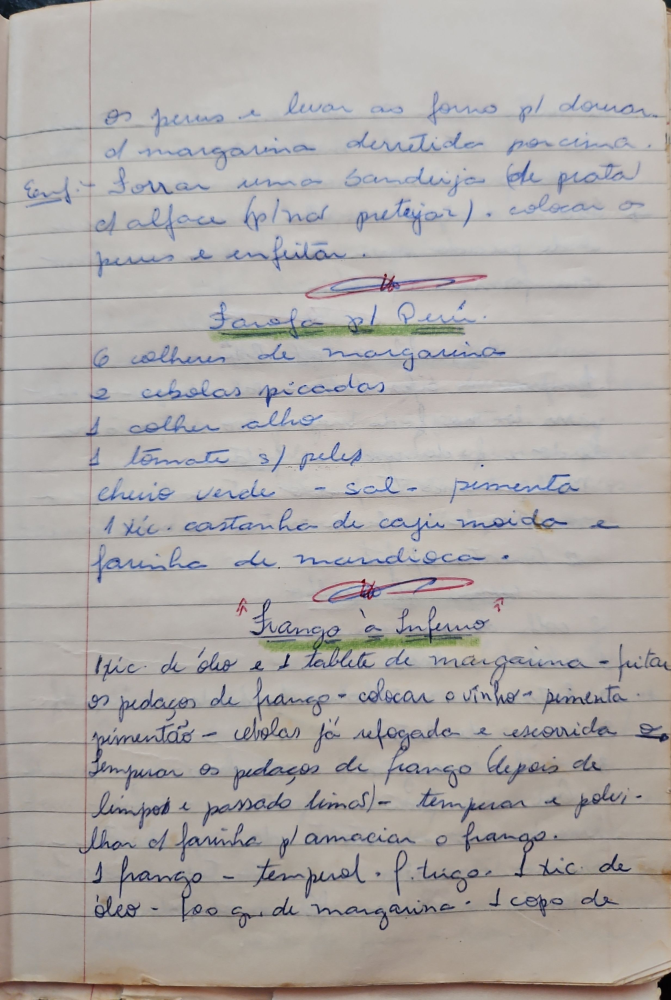 os perus e levar ao forno p/ dourar
c/ margarina derretida por cima.
Enf:- Forrar uma bandeija (de prata)
c/ alface (p/ não pretejar). colocar os
perus e enfeitar.
Farofa p/ Perú.
6 colheres de margarina
2 cebolas picadas
1 colher alho
1 tômate s/ peles
cheiro verde - sal - pimenta
1 xic. castanha de cajú moida e
farinha de mandioca.
"Frango à Inferno"
1 xic. de óleo e 1 tablete de margarina - fritar
os pedaços de frango - colocar o vinho - pimenta.
pimentão - cebolas já refogada e escorrida
Temperar os pedaços de frango (depois de
limpos e passado limão) - temperar e polvi-
lhar c/ farinha p/ amaciar o frango.
1 frango - temperol. f. trigo. 1 xic. de
óleo - 100 g. de margarina. 1 copo de